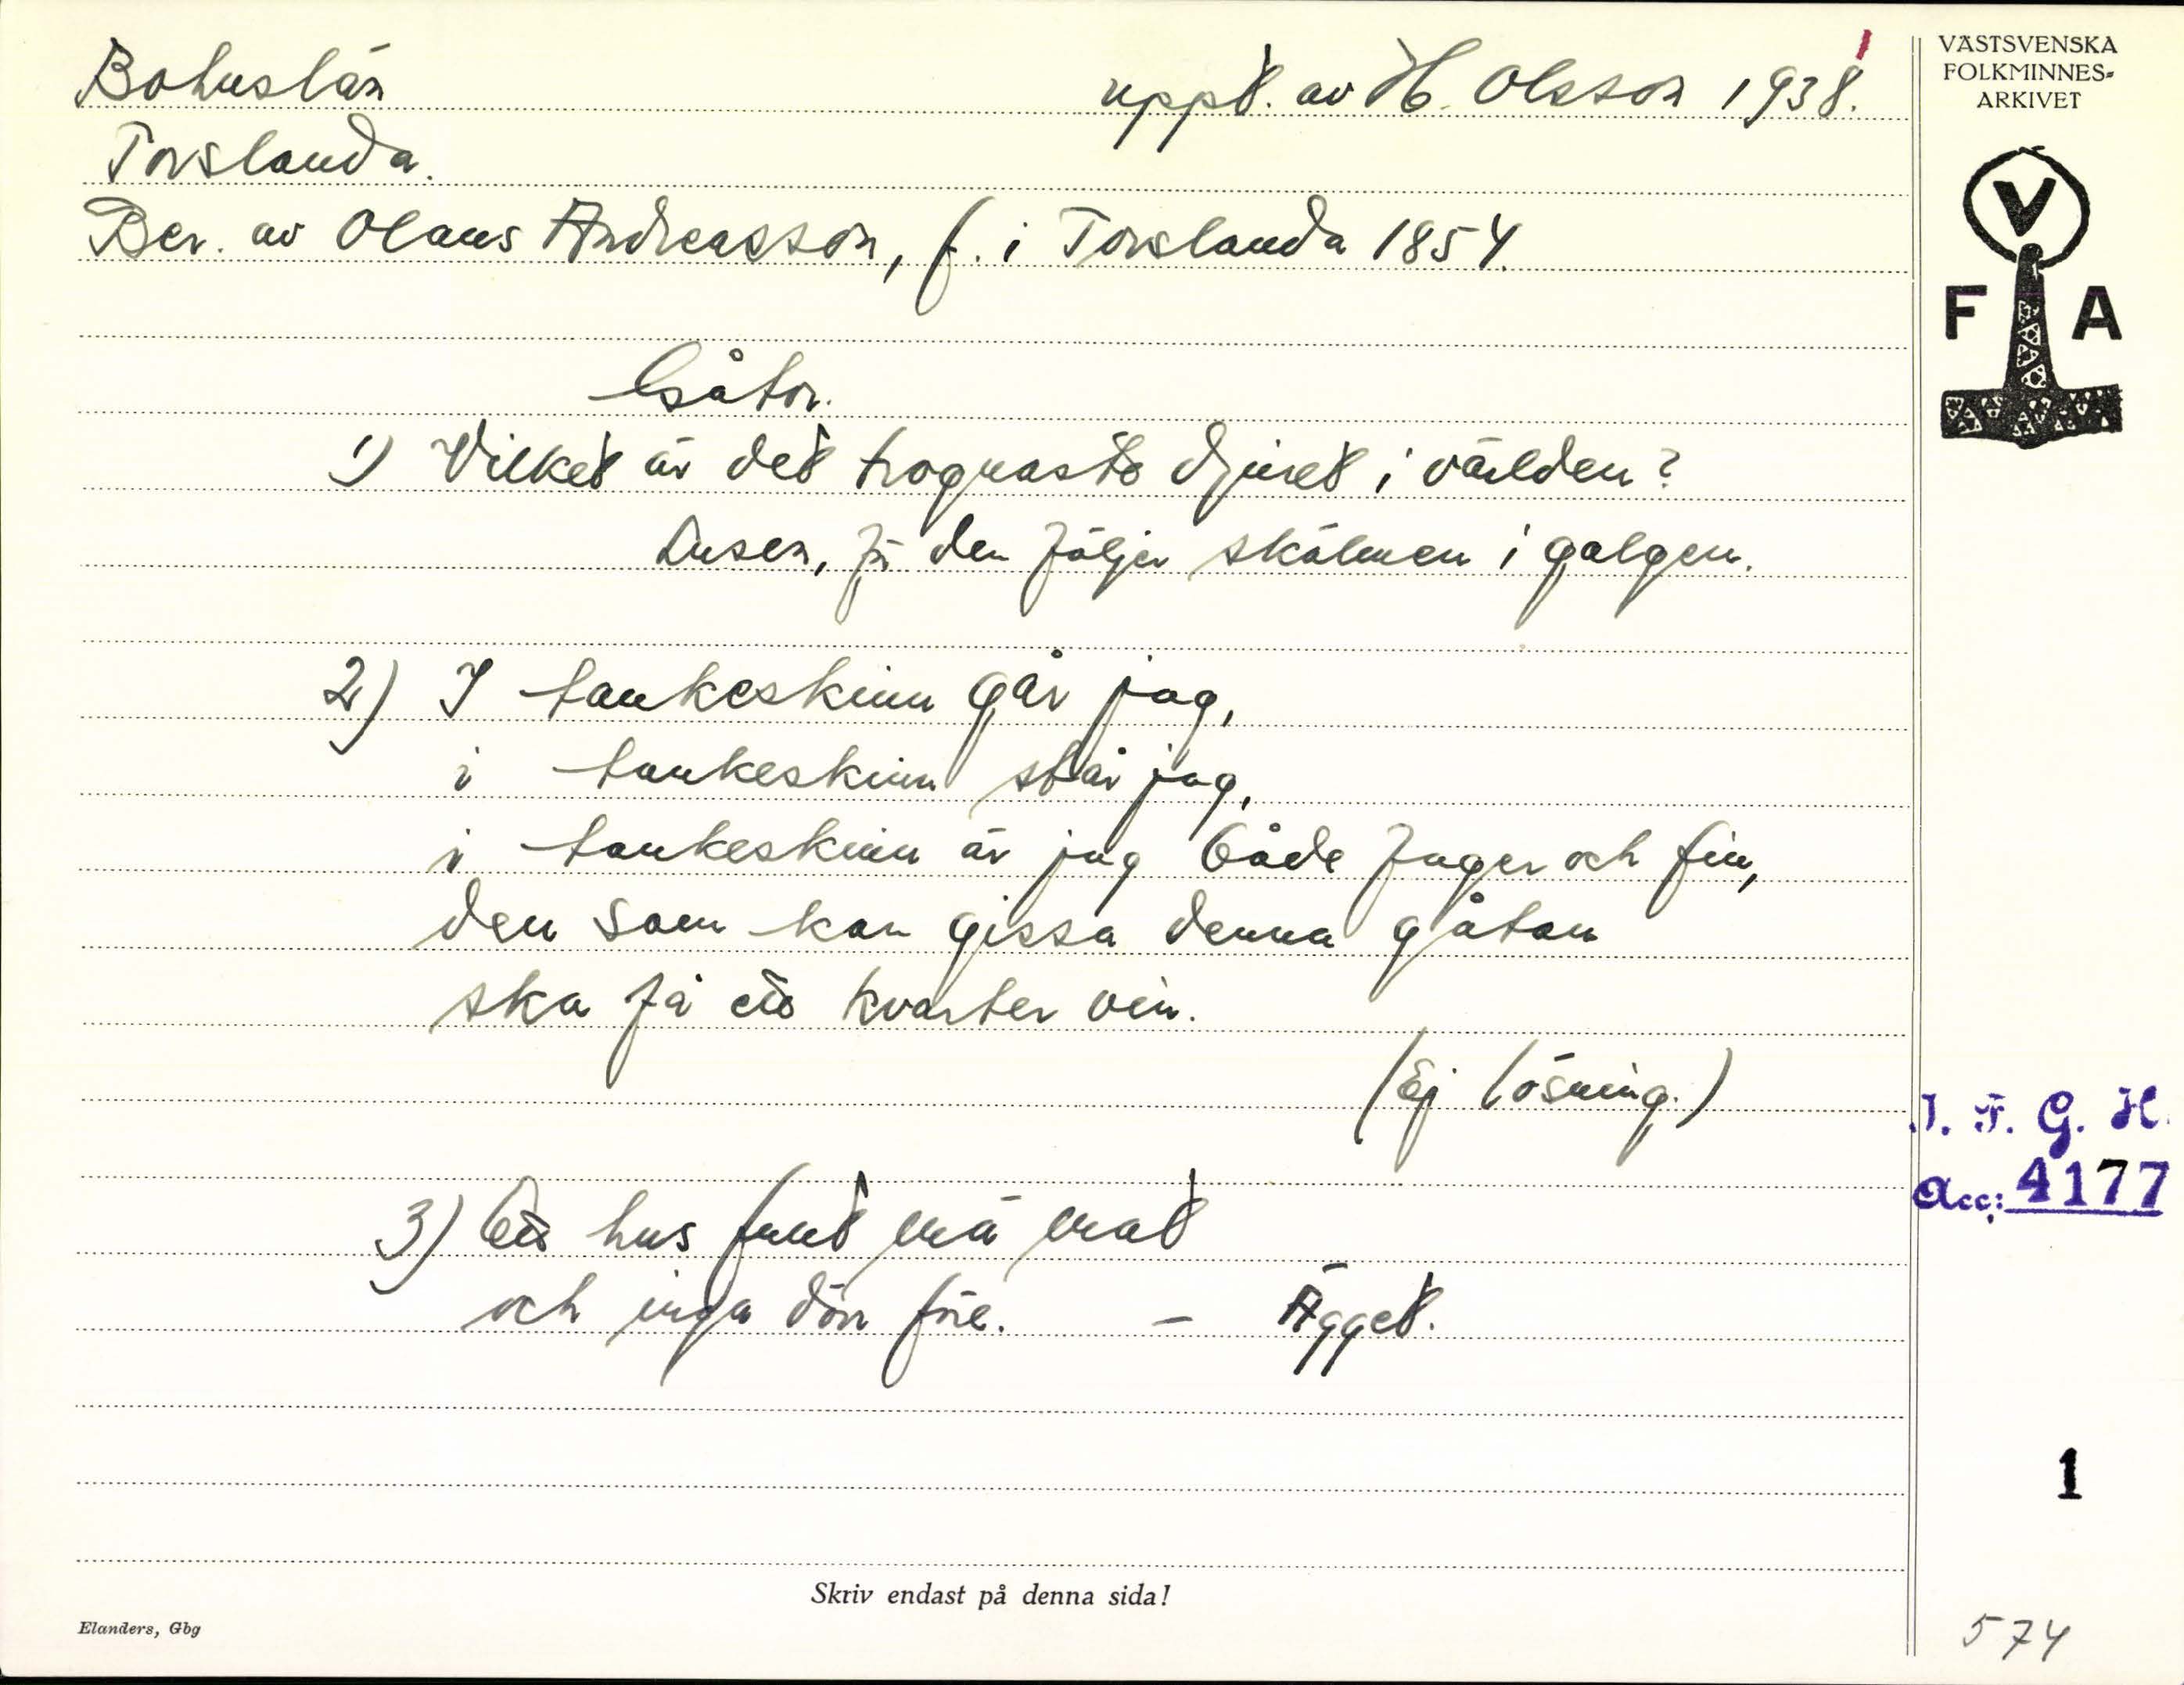 Bohuslän
uppt. av H. Olsson 1938.
Torslanda.
Ber. av Olaus Andreasson, f. i Torslanda 1854.
Gåtor.
1) Vilket är det trognaste djuret i världen?
Lusen, för den följer skälmen i galgen.
2) I tankeskinn går jag,
i tankeskinn står jag,
i tankeskinn är jag både fager och fin,
den som kan gissa denna gåtan
ska få ett kvarter vin.
(Ej lösning.)
3) Ett hus fullt mä mat
och inga dörr före. - Ägget.
Skriv endast på denna sida!
Elanders, Gbg
VÄSTSVENSKA
FOLKMINNES-
ARKIVET
V
F A
I. F. G. H.
Acc: 4177
1
574